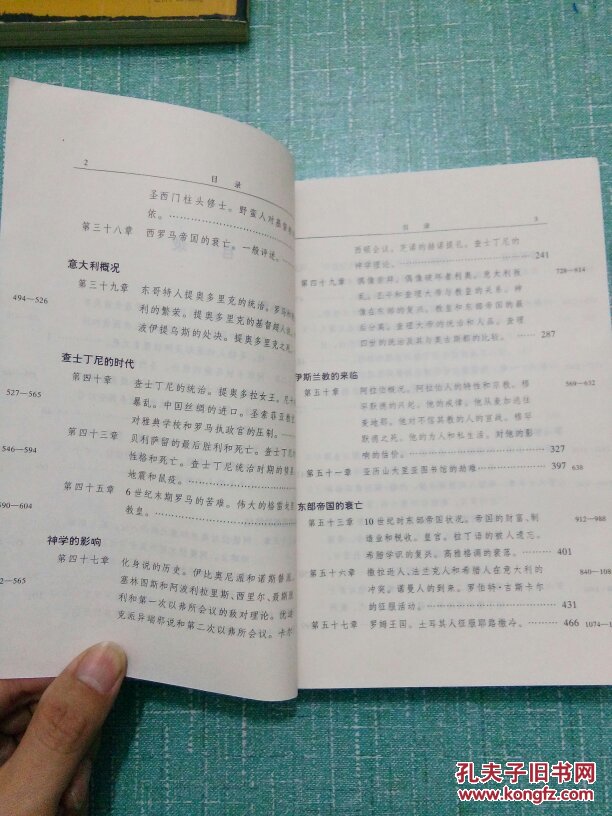 2
目 录
圣西门柱头修士。野蛮人对基督
依。
第三十八章 西罗马帝国的衰亡。一般评述。
意大利概况
494—526
第三十九章 东哥特人提奥多里克的统治。罗马
利的繁荣。提奥多里克的基督
波伊提乌斯的处决。提奥多里克之死。
查士丁尼的时代
527—565
第四十章 查士丁尼的统治。提奥多拉女王。尼卡
暴乱。中国丝绸的进口。圣索菲亚教
对雅典学校和罗马执政官的压制。
546—594
第四十三章 贝利萨留的最后胜利和死亡。查士丁尼
性格和死亡。查士丁尼统治时期的彗星
地震和鼠疫。
590—604
第四十五章 6世纪末期罗马的苦难。伟大的格雷戈
教皇。
神学的影响
2—565
第四十七章 化身说的历史。伊比奥尼派和诺斯替派
塞林图斯和阿波利拉里斯、西里尔、聂斯脱
利和第一次以弗所会议的敌对理论。优迪
克派异端邪说和第二次以弗所会议。卡尔
目 录
3
西顿会议。芝诺的赫诺提孔。查士丁尼的
神学理论。 241
728—814
第四十九章 偶像崇拜。偶像破坏者利奥。意大利叛
乱。丕平和查理大帝与教皇的关系。神
像在东部的复兴。教皇和东部帝国的最
后分离。查理大帝的统治和人品。查理
四世的统治及其与奥古斯都的比较。 287
伊斯兰教的来临
569—632
第五十章 阿拉伯概况。阿拉伯人的特性和宗教。穆
罕默德的兴起。他的戒律。他从麦加逃往
麦地那。他对不信其教的人的宣战。穆罕
默德之死。他的为人和私生活。对他的影
响的估价。 327
第五十一章 亚历山大里亚图书馆的劫难 397 638
东部帝国的衰亡
912—988
第五十三章 10世纪时东部帝国状况。帝国的财富、制
造业和税收。皇宫。拉丁语的被人遗忘。
希腊学识的复兴。高雅格调的衰落。 401
840—108
第五十六章 撒拉逊人、法兰克人和希腊人在意大利的
冲突。诺曼人的到来。罗伯特·吉斯卡尔
的征服活动。 431
第五十七章 罗姆王国。土耳其人征服耶路撒冷。 466 1074—1
孔夫子旧书网
www.kongfz.com